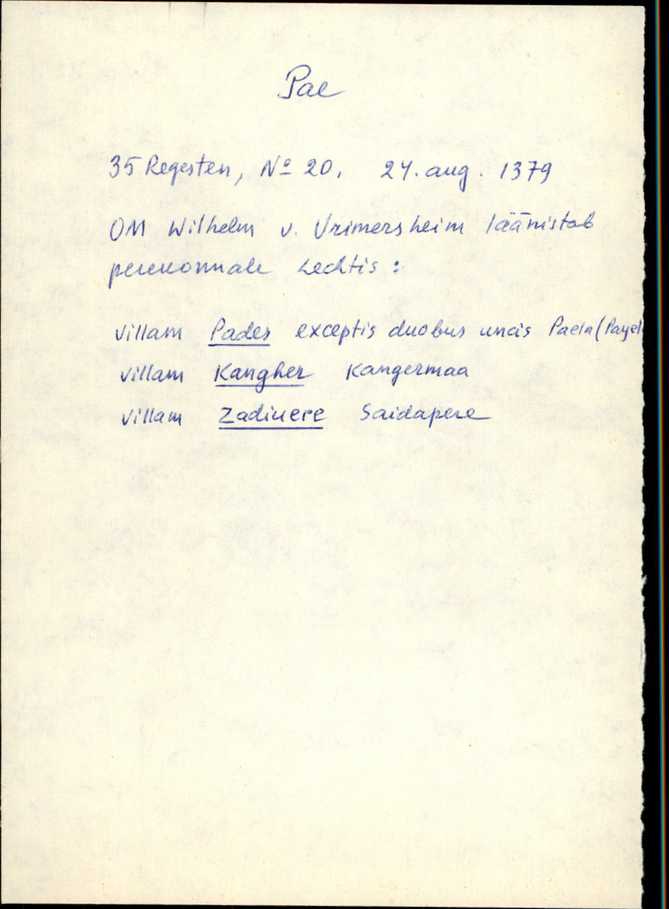 Pae
35 Regesten, Nº 20. 24. aug. 1379
OM Wilhelm v. Vrimersheim läänistab
perekonnale Lechtis:
villam Pades exceptis duobus uncis Paela (Payel
villam Kangher Kangermaa
villam Zadiuere Saidapere